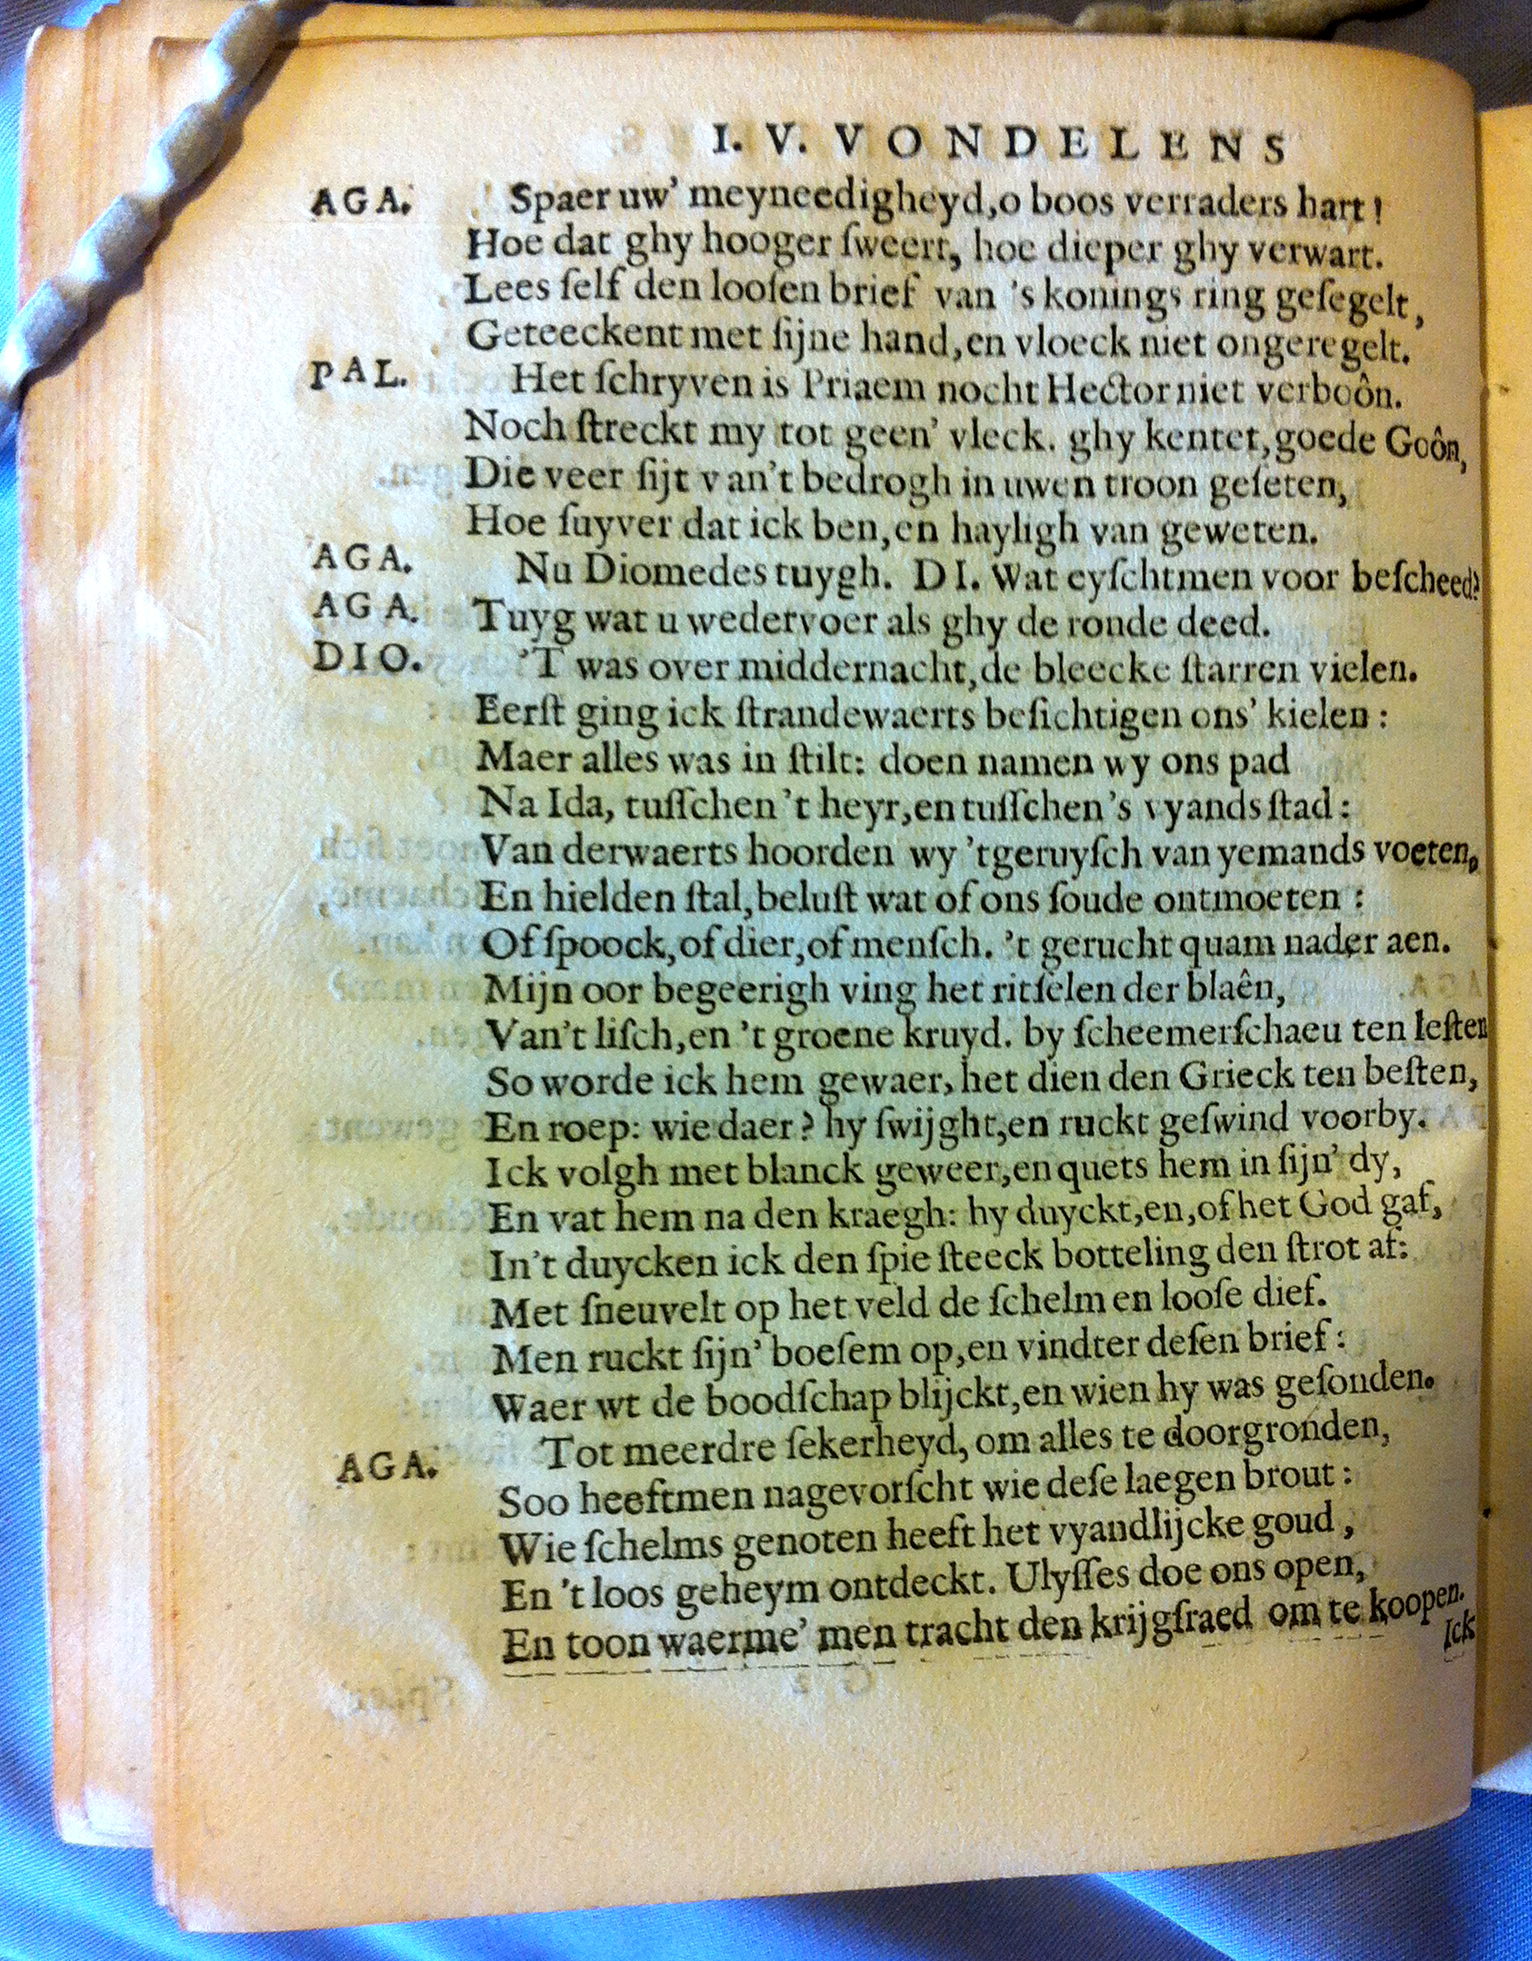 I. V. VONDELENS
AGA. Spaer uw' meyneedigheyd, o boos verraders hart!
Hoe dat ghy hooger ſweert, hoe dieper ghy verwart.
Lees ſelf den looſen brief van 's konings ring geſegelt,
Geteeckent met ſijne hand, en vloeck niet ongeregelt.
PAL. Het ſchryven is Priaem nocht Hector niet verboôn.
Noch ſtreckt my tot geen' vleck. ghy kentet, goede Goôn,
Die veer ſijt van't bedrogh in uwen troon geſeten,
Hoe ſuyver dat ick ben, en hayligh van geweten.
AGA. Nu Diomedes tuygh. DI. Wat eyſchtmen voor beſcheed?
AGA. Tuyg wat u wedervoer als ghy de ronde deed.
DIO. 'T was over middernacht, de bleecke ſtarren vielen.
Eerſt ging ick ſtrandewaerts beſichtigen ons' kielen:
Maer alles was in ſtilt: doen namen wy ons pad
Na Ida, tuſſchen 't heyr, en tuſſchen 's vyands ſtad:
Van derwaerts hoorden wy 'tgeruyſch van yemands voeten,
En hielden ſtal, beluſt wat of ons ſoude ontmoeten:
Of ſpoock, of dier, of menſch. 't gerucht quam nader aen.
Mijn oor begeerigh ving het ritſelen der blaên,
Van't liſch, en 't groene kruyd. by ſcheemerſchaeu ten leſten
So worde ick hem gewaer, het dien den Grieck ten beſten,
En roep: wie daer? hy ſwijght, en ruckt geſwind voorby.
Ick volgh met blanck geweer, en quets hem in ſijn' dy,
En vat hem na den kraegh: hy duyckt, en, of het God gaf,
In't duycken ick den ſpie ſteeck botteling den ſtrot af:
Met ſneuvelt op het veld de ſchelm en looſe dief.
Men ruckt ſijn' boeſem op, en vindter deſen brief:
Waer wt de boodſchap blijckt, en wien hy was geſonden.
AGA. Tot meerdre ſekerheyd, om alles te doorgronden,
Soo heeftmen nagevorſcht wie deſe laegen brout:
Wie ſchelms genoten heeft het vyandlijcke goud,
En 't loos geheym ontdeckt. Ulyſſes doe ons open,
En toon waerme' men tracht den krijgſraed om te koopen.
Ick